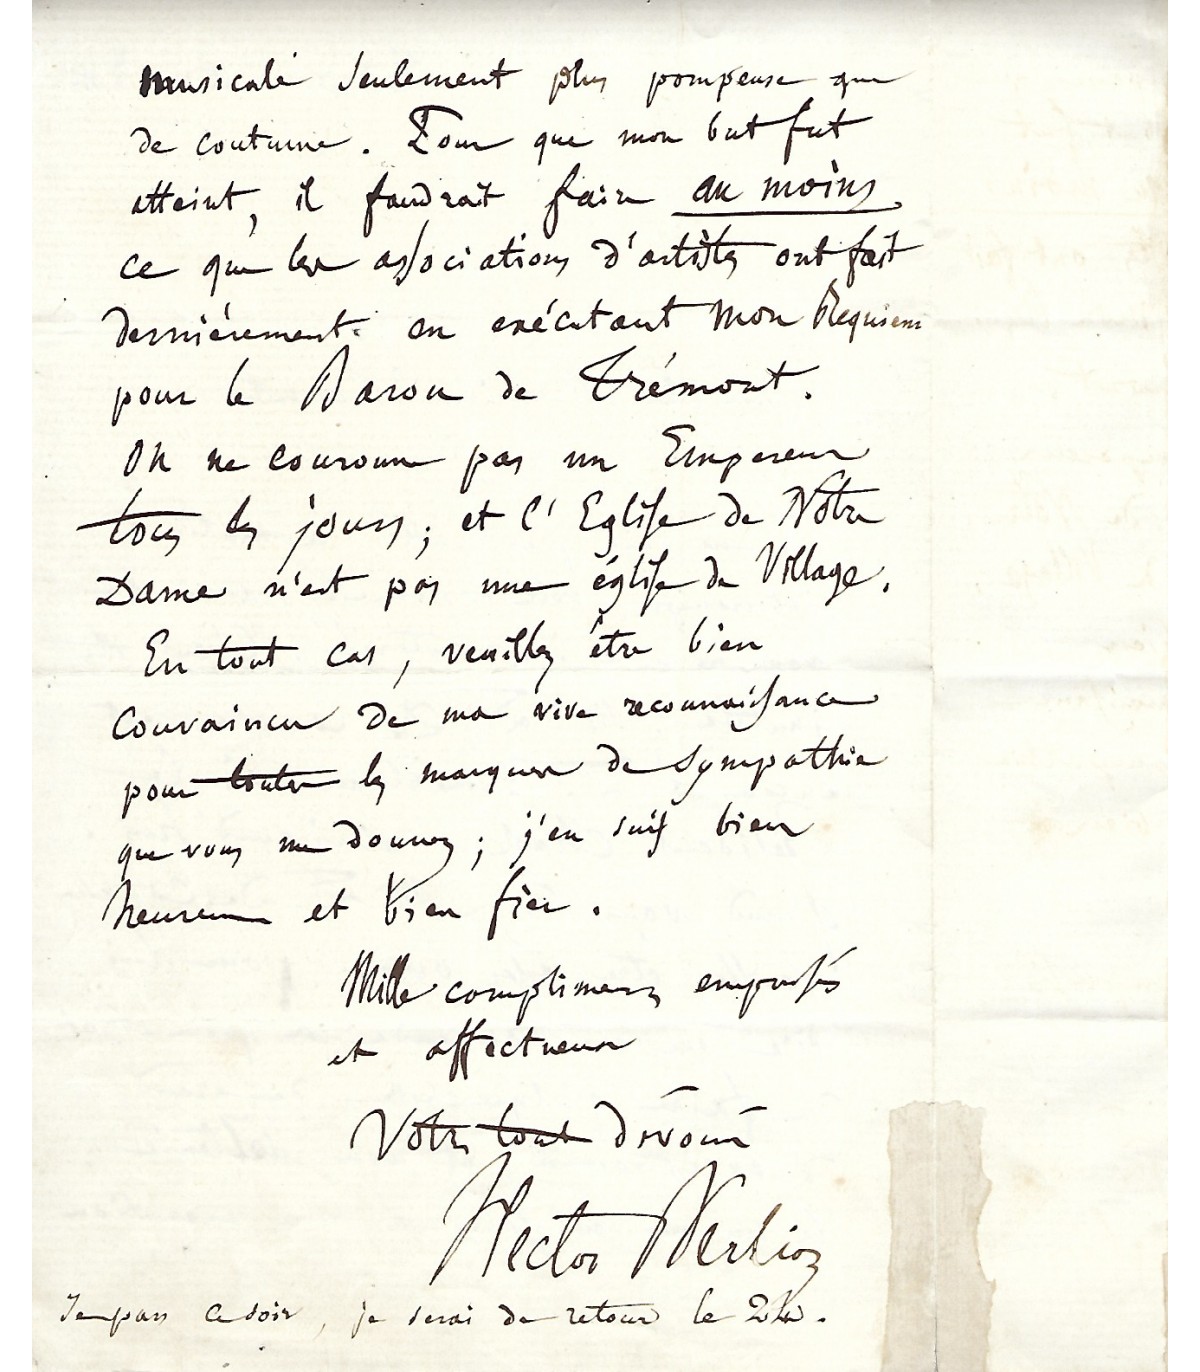 musicale seulement plus pompeuse que
de coutume. Pour que mon but fut
atteint, il faudrait faire au moins
ce que les associations d'artistes ont fait
dernièrement en exécutant mon Requiem
pour le Baron de Trémont.
On ne couronne pas un Empereur
tous les jours; et l'Eglise de Notre
Dame n'est pas une église de Village.
En tout cas, veuillez être bien
convaincu de ma vive reconnaissance
pour toutes les marques de sympathie
que vous me donnez; j'en suis bien
heureux et bien fier.
Mille complimens empressés
et affectueux
Votre tout dévoué
Hector Berlioz
Je pars ce soir, je serai de retour le